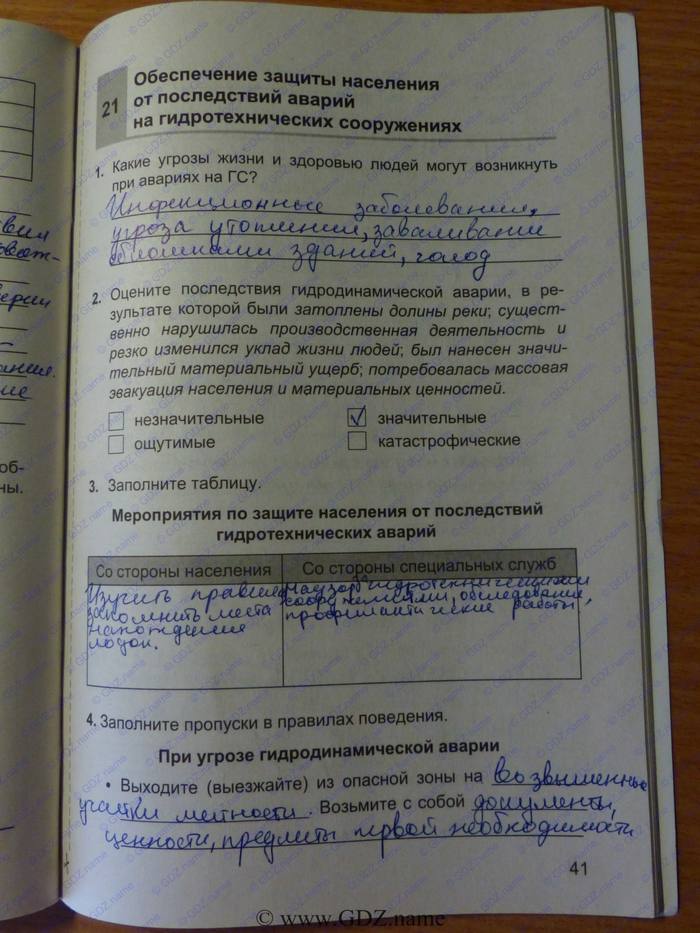 21
Обеспечение защиты населения
от последствий аварий
на гидротехнических сооружениях
1. Какие угрозы жизни и здоровью людей могут возникнуть
при авариях на ГС?
Инфекционные заболевания,
угроза утопления, заваливание
обломками зданий, голод
2. Оцените последствия гидродинамической аварии, в ре-
зультате которой были затоплены долины реки; сущест-
венно нарушилась производственная деятельность и
резко изменился уклад жизни людей; был нанесен значи-
тельный материальный ущерб; потребовалась массовая
эвакуация населения и материальных ценностей.
незначительные
значительные
ощутимые
катастрофические
3. Заполните таблицу.
Мероприятия по защите населения от последствий
гидротехнических аварий
Со стороны населения
Со стороны специальных служб
Изучить правила
запомнить места
нахождения
лодок.
Надзор за гидротехническими
сооружениями, обследование,
профилактические работы,
4. Заполните пропуски в правилах поведения.
При угрозе гидродинамической аварии
• Выходите (выезжайте) из опасной зоны на возвышенные
участки местности. Возьмите с собой документы,
ценности, предметы первой необходимости
41
об-
ны.
© www.GDZ.name